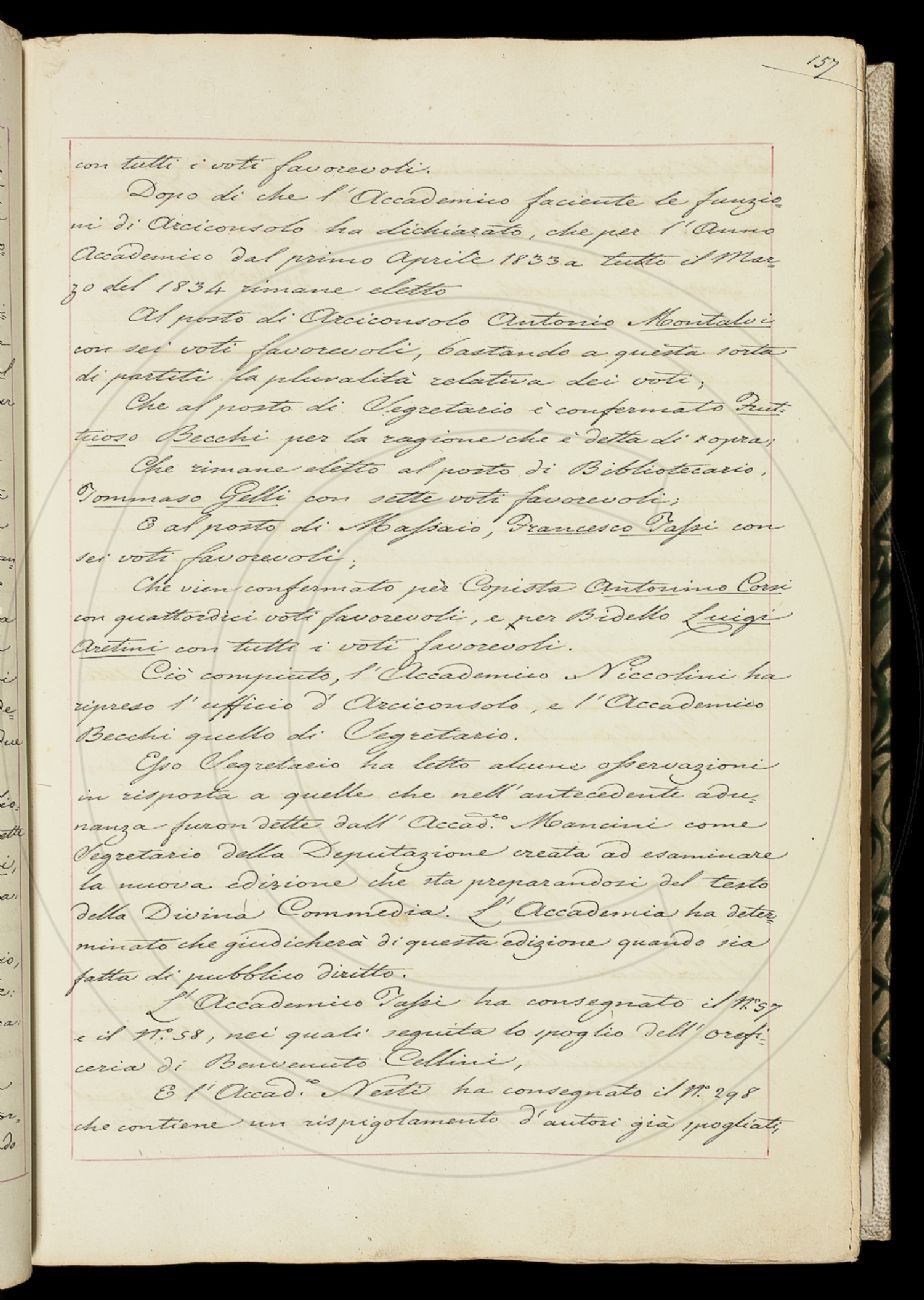 157
con tutti i voti favorevoli.
Dopo di che l'Accademico faciente le funzio-
ni di Arciconsolo ha dichiarato, che per l'Anno
Accademico dal primo Aprile 1833 a tutto il Mar-
zo del 1834 rimane eletto
Al posto di Arciconsolo Antonio Montalvi
con sei voti favorevoli, bastando a questa sorta
di partiti la pluralità relativa dei voti;
Che al posto di Segretario è confermato Frut-
tuoso Becchi per la ragione che è detta di sopra;
Che rimane eletto al posto di Bibliotecario,
Tommaso Gelli con sette voti favorevoli;
E al posto di Massaio, Francesco Tassi con
sei voti favorevoli;
Che vien confermato per Copista Antonino Corsi
con quattordici voti favorevoli, e per Bidello Luigi
Aretini con tutti i voti favorevoli.
Ciò compiuto, l'Accademico Niccolini ha
ripreso l'ufficio d'Arciconsolo, e l'Accademico
Becchi quello di Segretario.
Esso Segretario ha letto alcune osservazioni
in risposta a quelle che nell'antecedente adu-
nanza furon dette dall'Accad.co Mancini come
Segretario della Deputazione creata ad esaminare
la nuova edizione che sta preparandosi del testo
della Divina Commedia. L'Accademia ha deter-
minato che giudicherà di questa edizione quando sia
fatta di pubblico diritto.
L'Accademico Tassi ha consegnato il N.o 57
e il N.o 58, nei quali seguita lo spoglio dell'Orefi-
ceria di Benvenuto Cellini,
E l'Accad.co Nesti ha consegnato il N.o 298
che contiene un rispigolamento d'autori già spogliati,